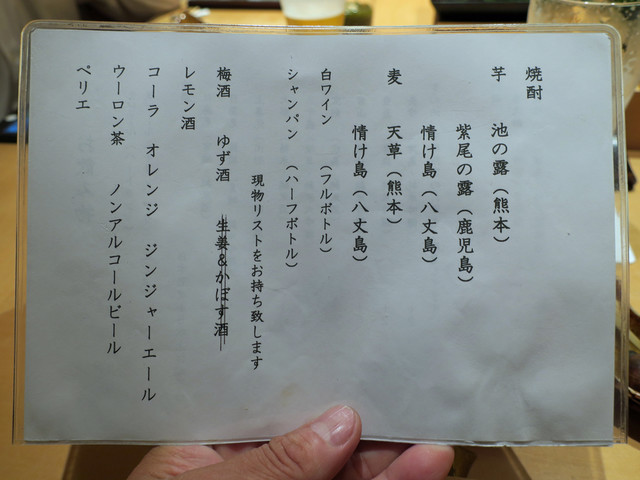 焼酎
芋　池の露（熊本）
紫尾の露（鹿児島）
情け島（八丈島）
麦　天草（熊本）
情け島（八丈島）
白ワイン　（フルボトル）
シャンパン　（ハーフボトル）
現物リストをお持ち致します
梅酒　ゆず酒　生姜&かぼす酒
レモン酒
コーラ　オレンジ　ジンジャーエール
ウーロン茶　ノンアルコールビール
ペリエ